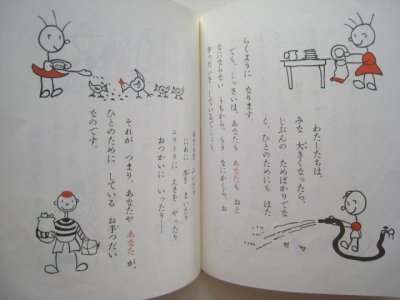 わたしたちは、
みな 大きくなったら、
じぶんの ためばかりでな
く、ひとのためにも はた
らくように なります。
でも、じっさいは、あなたも あなたも おと
なにならない うちから、もう なにかしら、お
手つだいを しているでしょう。
にわに 水を まいたり
ニワトリに えさを やったり
おつかいに いったり――
それが つまり、あなたや あなたが、
ひとのために している お手つだい
なのです。